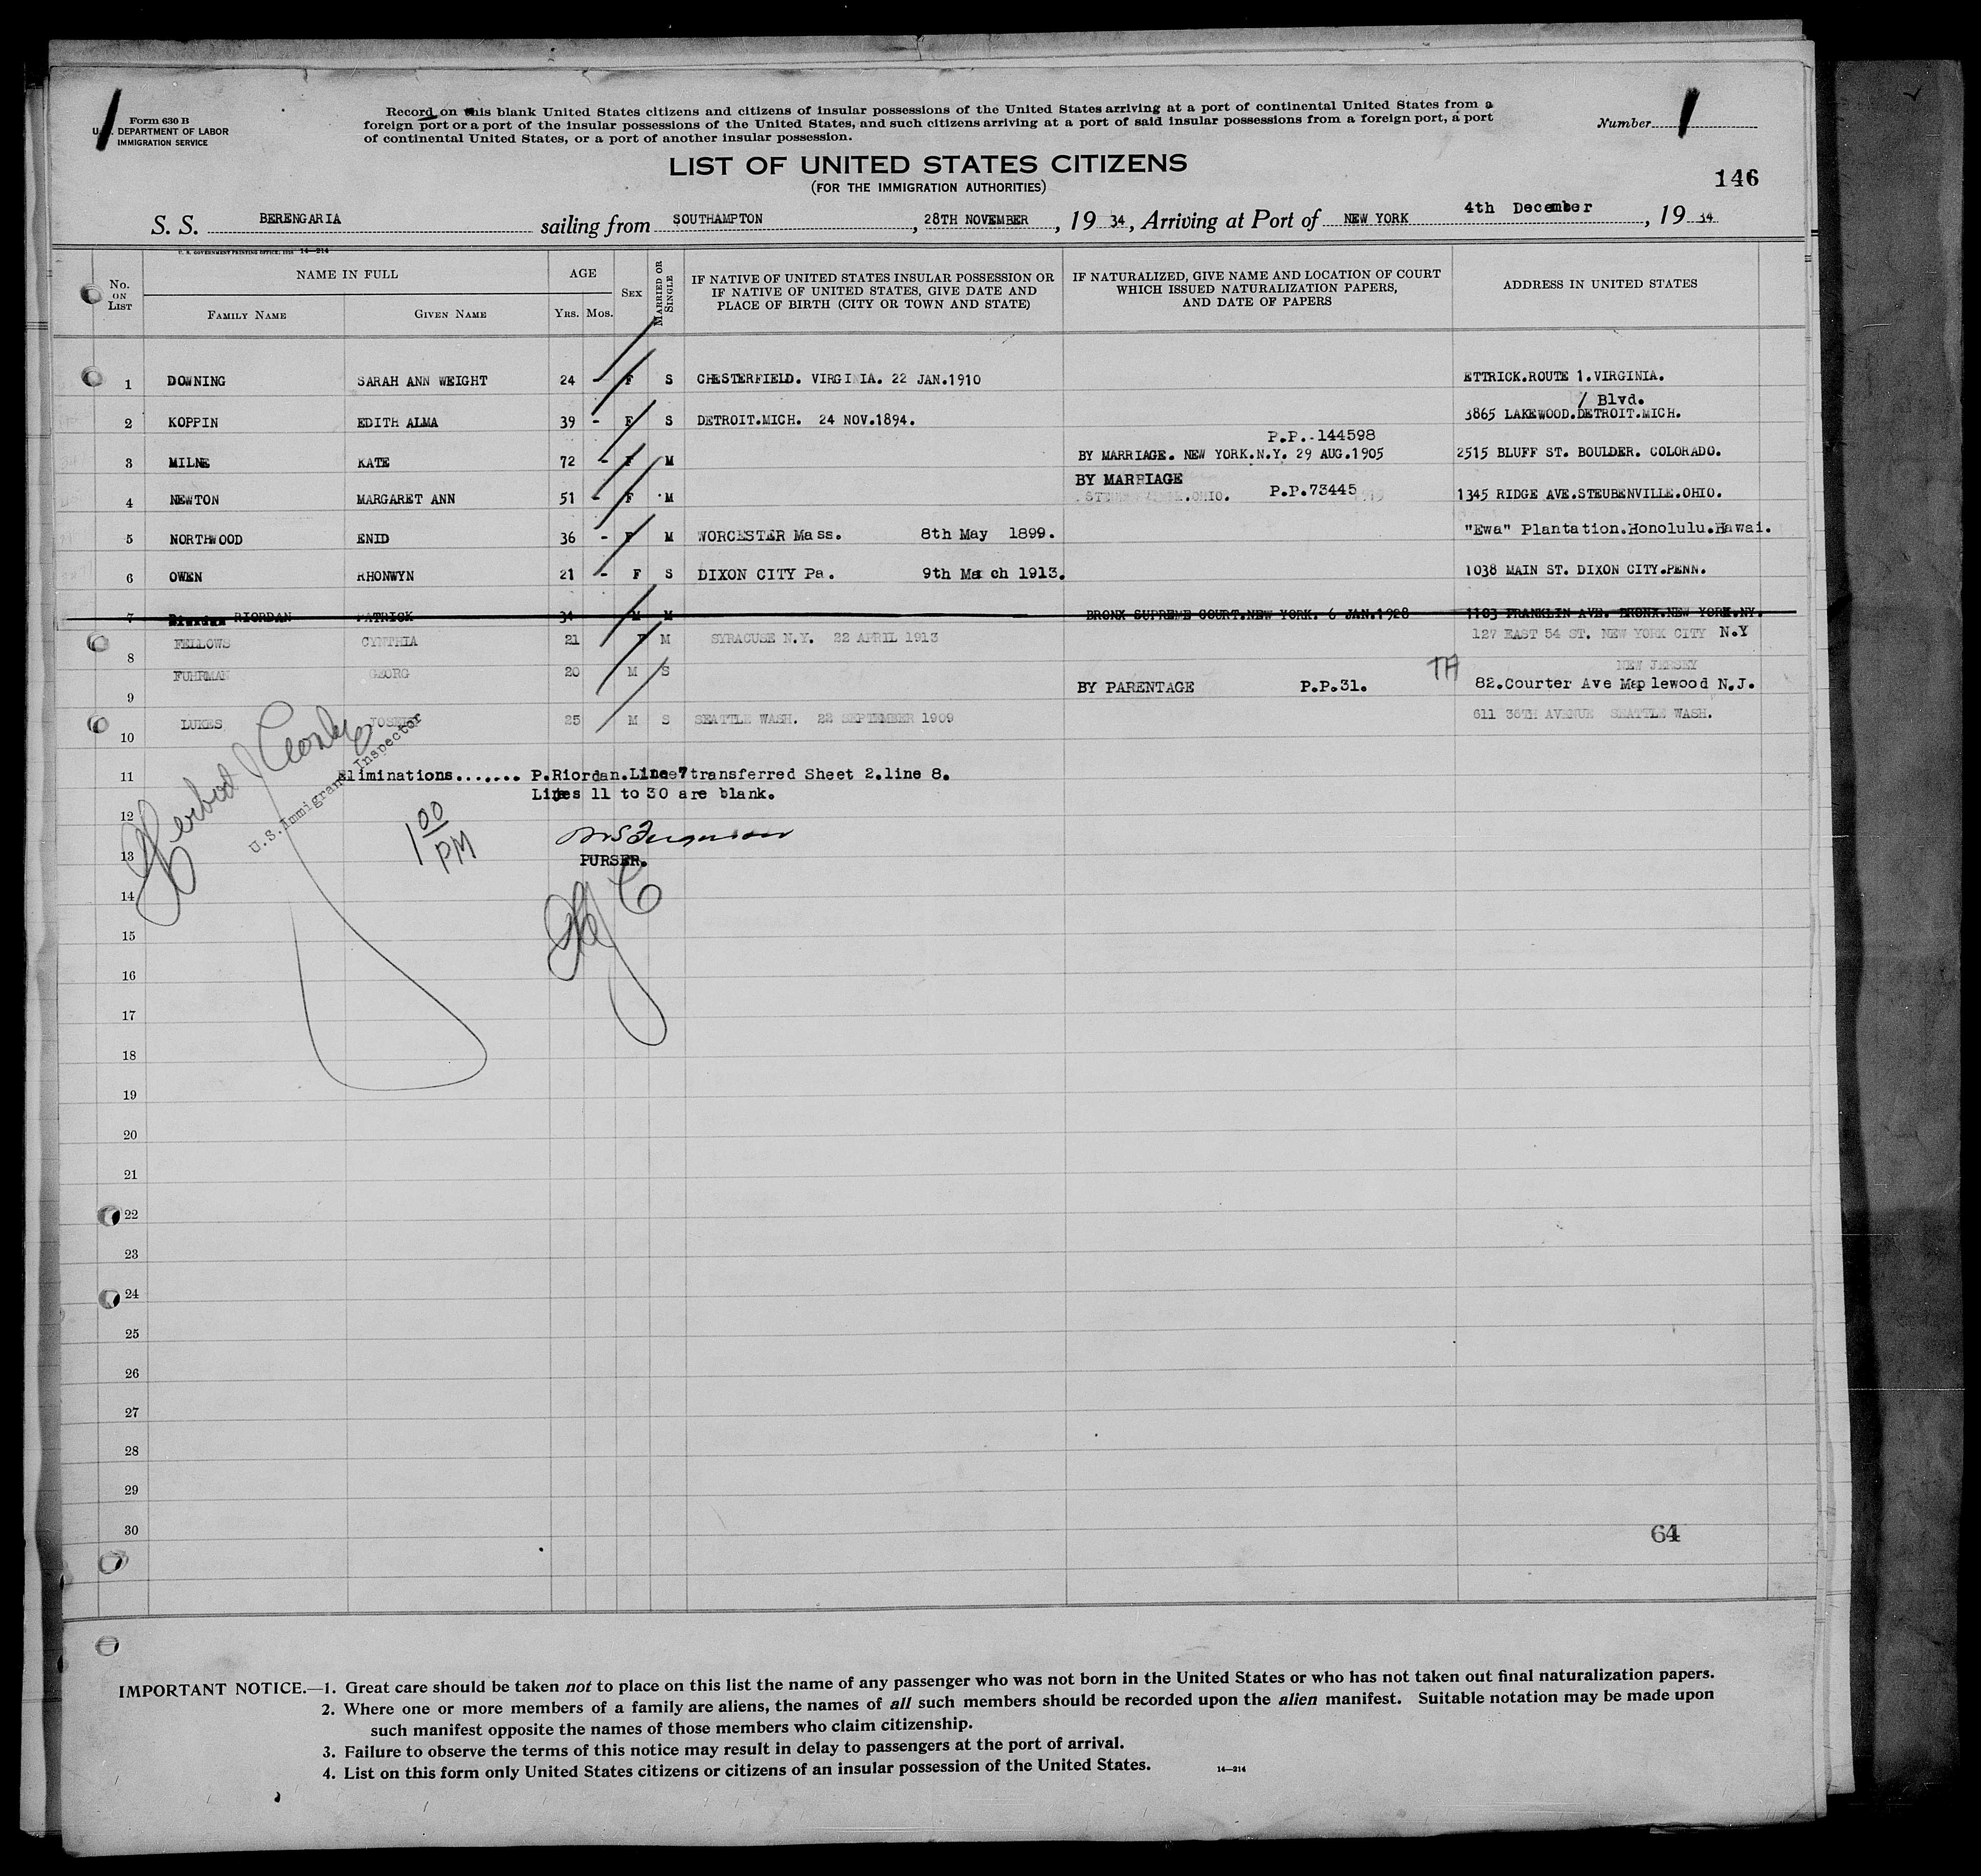 Form 630 B
U. S. DEPARTMENT OF LABOR
IMMIGRATION SERVICE
Record on this blank United States citizens and citizens of insular possessions of the United States arriving at a port of continental United States from a
foreign port or a port of the insular possessions of the United States, and such citizens arriving at a port of said insular possessions from a foreign port, a port
of continental United States, or a port of another insular possession.
Number 1
LIST OF UNITED STATES CITIZENS
(FOR THE IMMIGRATION AUTHORITIES)
146
S. S. BERENGARIA sailing from SOUTHAMPTON, 28TH NOVEMBER, 19 34, Arriving at Port of NEW YORK 4th December, 19 34
U. S. GOVERNMENT PRINTING OFFICE: 14—214
No. ON LIST NAME IN FULL AGE SEX MARRIED OR SINGLE IF NATIVE OF UNITED STATES INSULAR POSSESSION OR IF NATIVE OF UNITED STATES, GIVE DATE AND PLACE OF BIRTH (CITY OR TOWN AND STATE) IF NATURALIZED, GIVE NAME AND LOCATION OF COURT WHICH ISSUED NATURALIZATION PAPERS, AND DATE OF PAPERS ADDRESS IN UNITED STATES
FAMILY NAME GIVEN NAME YRS. MOS.
1 DOWNING SARAH ANN WEIGHT 24 - F S CHESTERFIELD. VIRGINIA. 22 JAN.1910 ETTRICK.ROUTE 1.VIRGINIA.
/ Blvd.
2 KOPPIN EDITH ALMA 39 - F S DETROIT.MICH. 24 NOV.1894. 3865 LAKEWOOD.DETROIT.MICH.
P.P.-144598
3 MILNE KATE 72 - F M BY MARRIAGE. NEW YORK.N.Y. 29 AUG.1905 2515 BLUFF ST. BOULDER. COLORADO.
BY MARRIAGE
4 NEWTON MARGARET ANN 51 - F M .OHIO. P.P.73445 1345 RIDGE AVE.STEUBENVILLE.OHIO.
5 NORTHWOOD ENID 36 - F M WORCESTER Mass. 8th May 1899. "Ewa" Plantation.Honolulu.Hawai.
6 OWEN RHONWYN 21 - F S DIXON CITY Pa. 9th Ma ch 1913. 1038 MAIN ST. DIXON CITY.PENN.
7 Riordan RIORDAN PATRICK 34 M M BRONX SUPREME COURT.NEW YORK. 6 JAN.1928 1183 FRANKLIN AVE. BRONX.NEW YORK.NY.
FELLOWS CYNTHIA 21 F M SYRACUSE N.Y. 22 APRIL 1913 127 EAST 54 ST. NEW YORK CITY N.Y
8
FUHRMAN GEORG 20 M S NEW JERSEY
BY PARENTAGE P.P.31. TA 82.Courter Ave Maplewood N.J.
9
LUKES JOSEPH 25 M S SEATTLE WASH. 22 SEPTEMBER 1909 611 36TH AVENUE SEATTLE WASH.
10
U.S. Immigrant Inspector
11 Eliminations....... P.Riordan.Line 7 transferred Sheet 2.line 8.
Lines 11 to 30 are blank.
12
1 00 PM
13 PURSER.
14
15
16
17
18
19
20
21
22
23
24
25
26
27
28
29
30
64
IMPORTANT NOTICE.—1. Great care should be taken not to place on this list the name of any passenger who was not born in the United States or who has not taken out final naturalization papers.
2. Where one or more members of a family are aliens, the names of all such members should be recorded upon the alien manifest. Suitable notation may be made upon
such manifest opposite the names of those members who claim citizenship.
3. Failure to observe the terms of this notice may result in delay to passengers at the port of arrival.
4. List on this form only United States citizens or citizens of an insular possession of the United States.
14—214